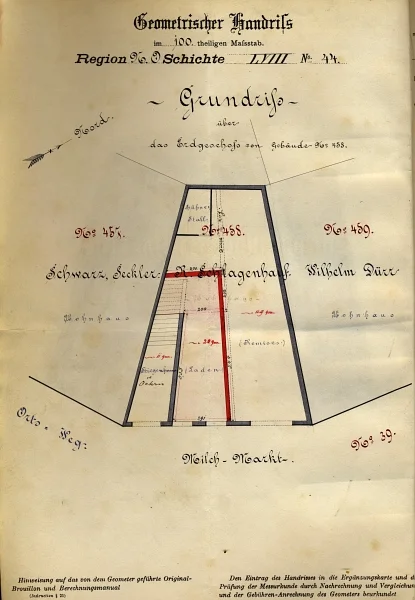 Geometrischer Handriſs
im 100. theiligen Maſsstab.
Region N. O Schichte LVIII No. 44.
Grundriſs
über
das Erdgeschoſs von Gebäude-No 458.
Nord.
Stall
No 457. No 458. No 459.
Schwarz, Seckler. R. Schlagenhauf. Wilhelm Dürr
Wohnhaus
Wohnhaus
(Laden)
Orts-Weg.
No 39.
Milch-Markt.
Hinweisung auf das von dem Geometer geführte Original-
Brouillon und Berechnungsmanual
Den Eintrag des Handrisses in die Ergänzungskarte und d
Prüfung der Messurkunde durch Nachrechnung und Vergleichun
und der Gebühren-Anrechnung des Geometers beurkundet